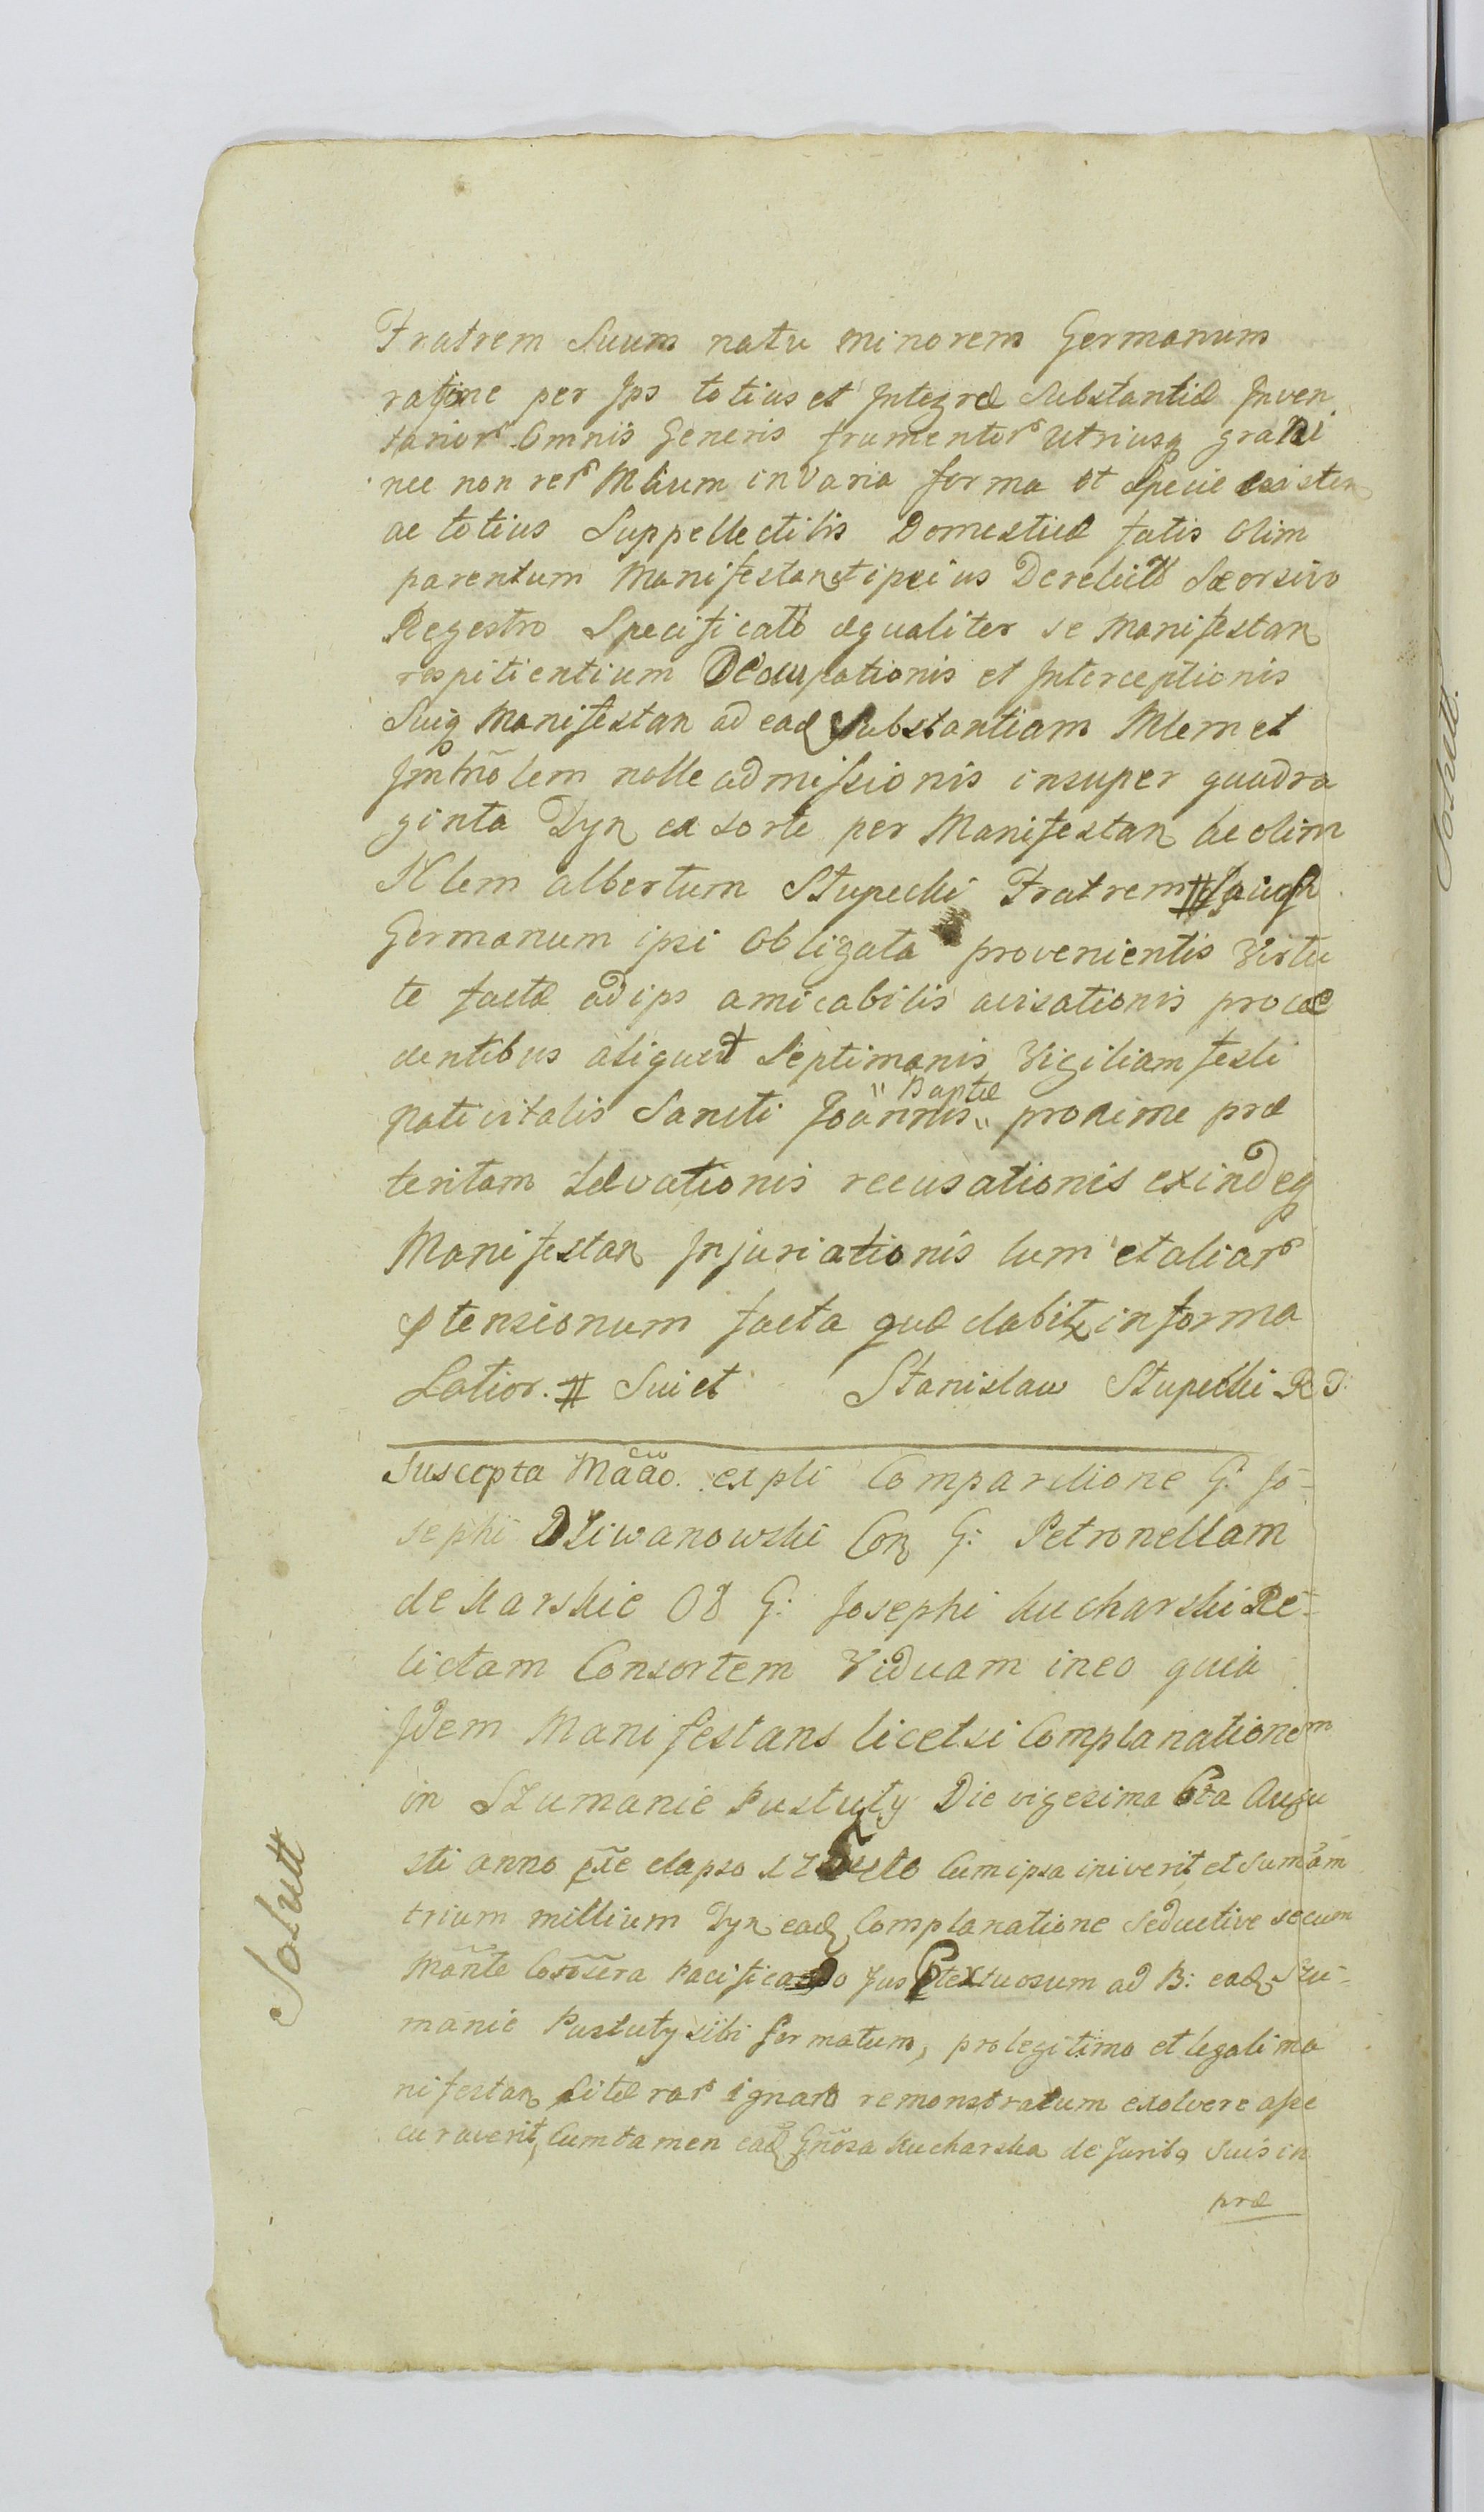 Fratrem Suum natu minorem Germanum
ratione per Ips totius et Integræ Substantiæ Inven
tarior Omnis Generis frumentor utriusq grani
nec non rer Mlium in Varia forma et Specie existen
ac totius Suppellectilis Domesticæ fatis olim
parentum Manifestan et ipsius Derelict Seorsivo
Regestro Specificat æqualiter se Manifestan
respitientium Occupationis et Interceptionis
Suiq Manifestan ad ead Substantiam Mlem et
Immolem nolle admissionis insuper quadra
ginta Tyn ex sorte per Manifestan ac olim
Nlem albertum Stupecki Fratrem #
Germanum ipsi Obligata provenientis Virtu
te factæ ad ips amicabilis avisationis procæ
dentibus aliquot Septimanis Vigiliam festi
Nativitatis Sancti Joannis " Baptæ " proxime præ
teritam Levationis recusationis exindeq
Manifestan Injuriationis tum et aliar
ptensionum facta quæ dabit in forma
Latior. # Sui et Stanislaw Stupecki R P:
Suscepta Maao. expli Comparitione G: Jo=
sephi Dziwanowski Con G: Petronellam
de Karskie Ol G: Josephi Kucharski Re=
lictam Consortem Viduam in eo quia
Idem Manifestans licet si Complanationem
in Szumanie Pustuły Die vigesima 6ta Augu
sti anno pte elapso Cum ipsa iniverit et Sumam
trium millium Tyn ead Complanatione Seductive secum
Mante pacificando Jus Ptextuosum ad B: ead Szu=
manie Pustuły sibi formatum, pro legitimo et legali ma
nifestan Litæ rar ignaro remonstratum exolvere asse
curaverit, Cum tamen ead Gnosa Kucharska de Jurib9 Suis in
præ
Soluit